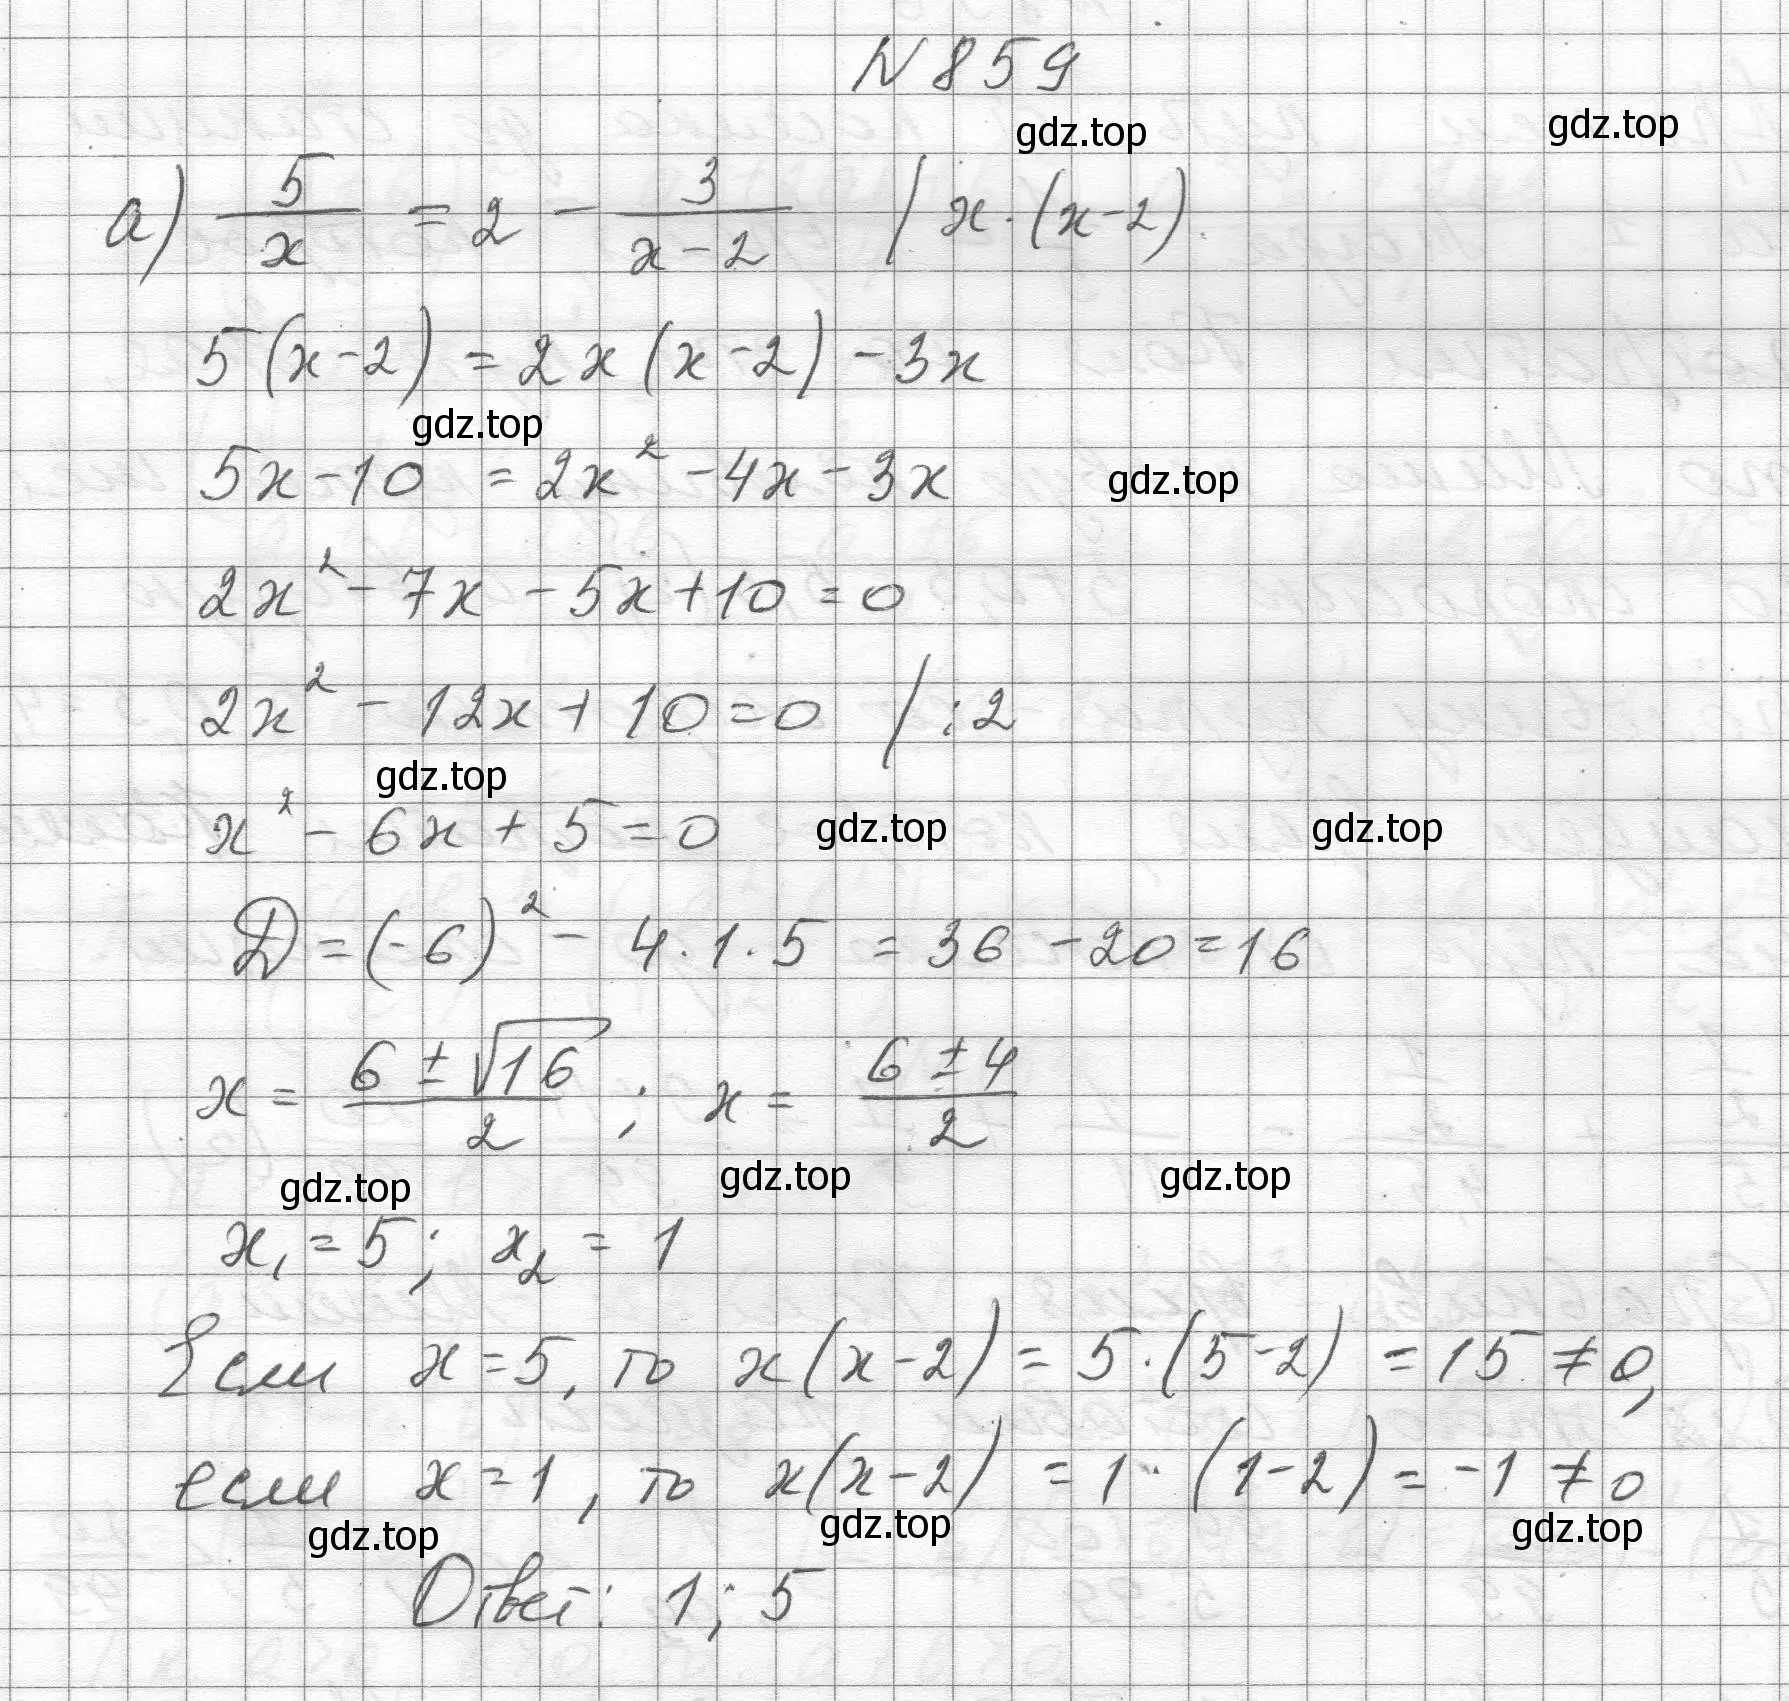 N 859
gdz.top gdz.top
а) 5/x = 2 - 3/(x-2) | x·(x-2)
5(x-2) = 2x(x-2) - 3x
gdz.top
5x-10 = 2x² - 4x - 3x gdz.top
2x² - 7x - 5x + 10 = 0
2x² - 12x + 10 = 0 | :2
gdz.top
x² - 6x + 5 = 0 gdz.top gdz.top
D = (-6)² - 4·1·5 = 36 - 20 = 16
x = (6 ± √16)/2 ; x = (6 ± 4)/2
gdz.top gdz.top gdz.top
x₁ = 5; x₂ = 1
Если x = 5, то x(x-2) = 5·(5-2) = 15 ≠ 0,
если x = 1, то x(x-2) = 1·(1-2) = -1 ≠ 0
gdz.top gdz.top gdz.top
Ответ: 1; 5